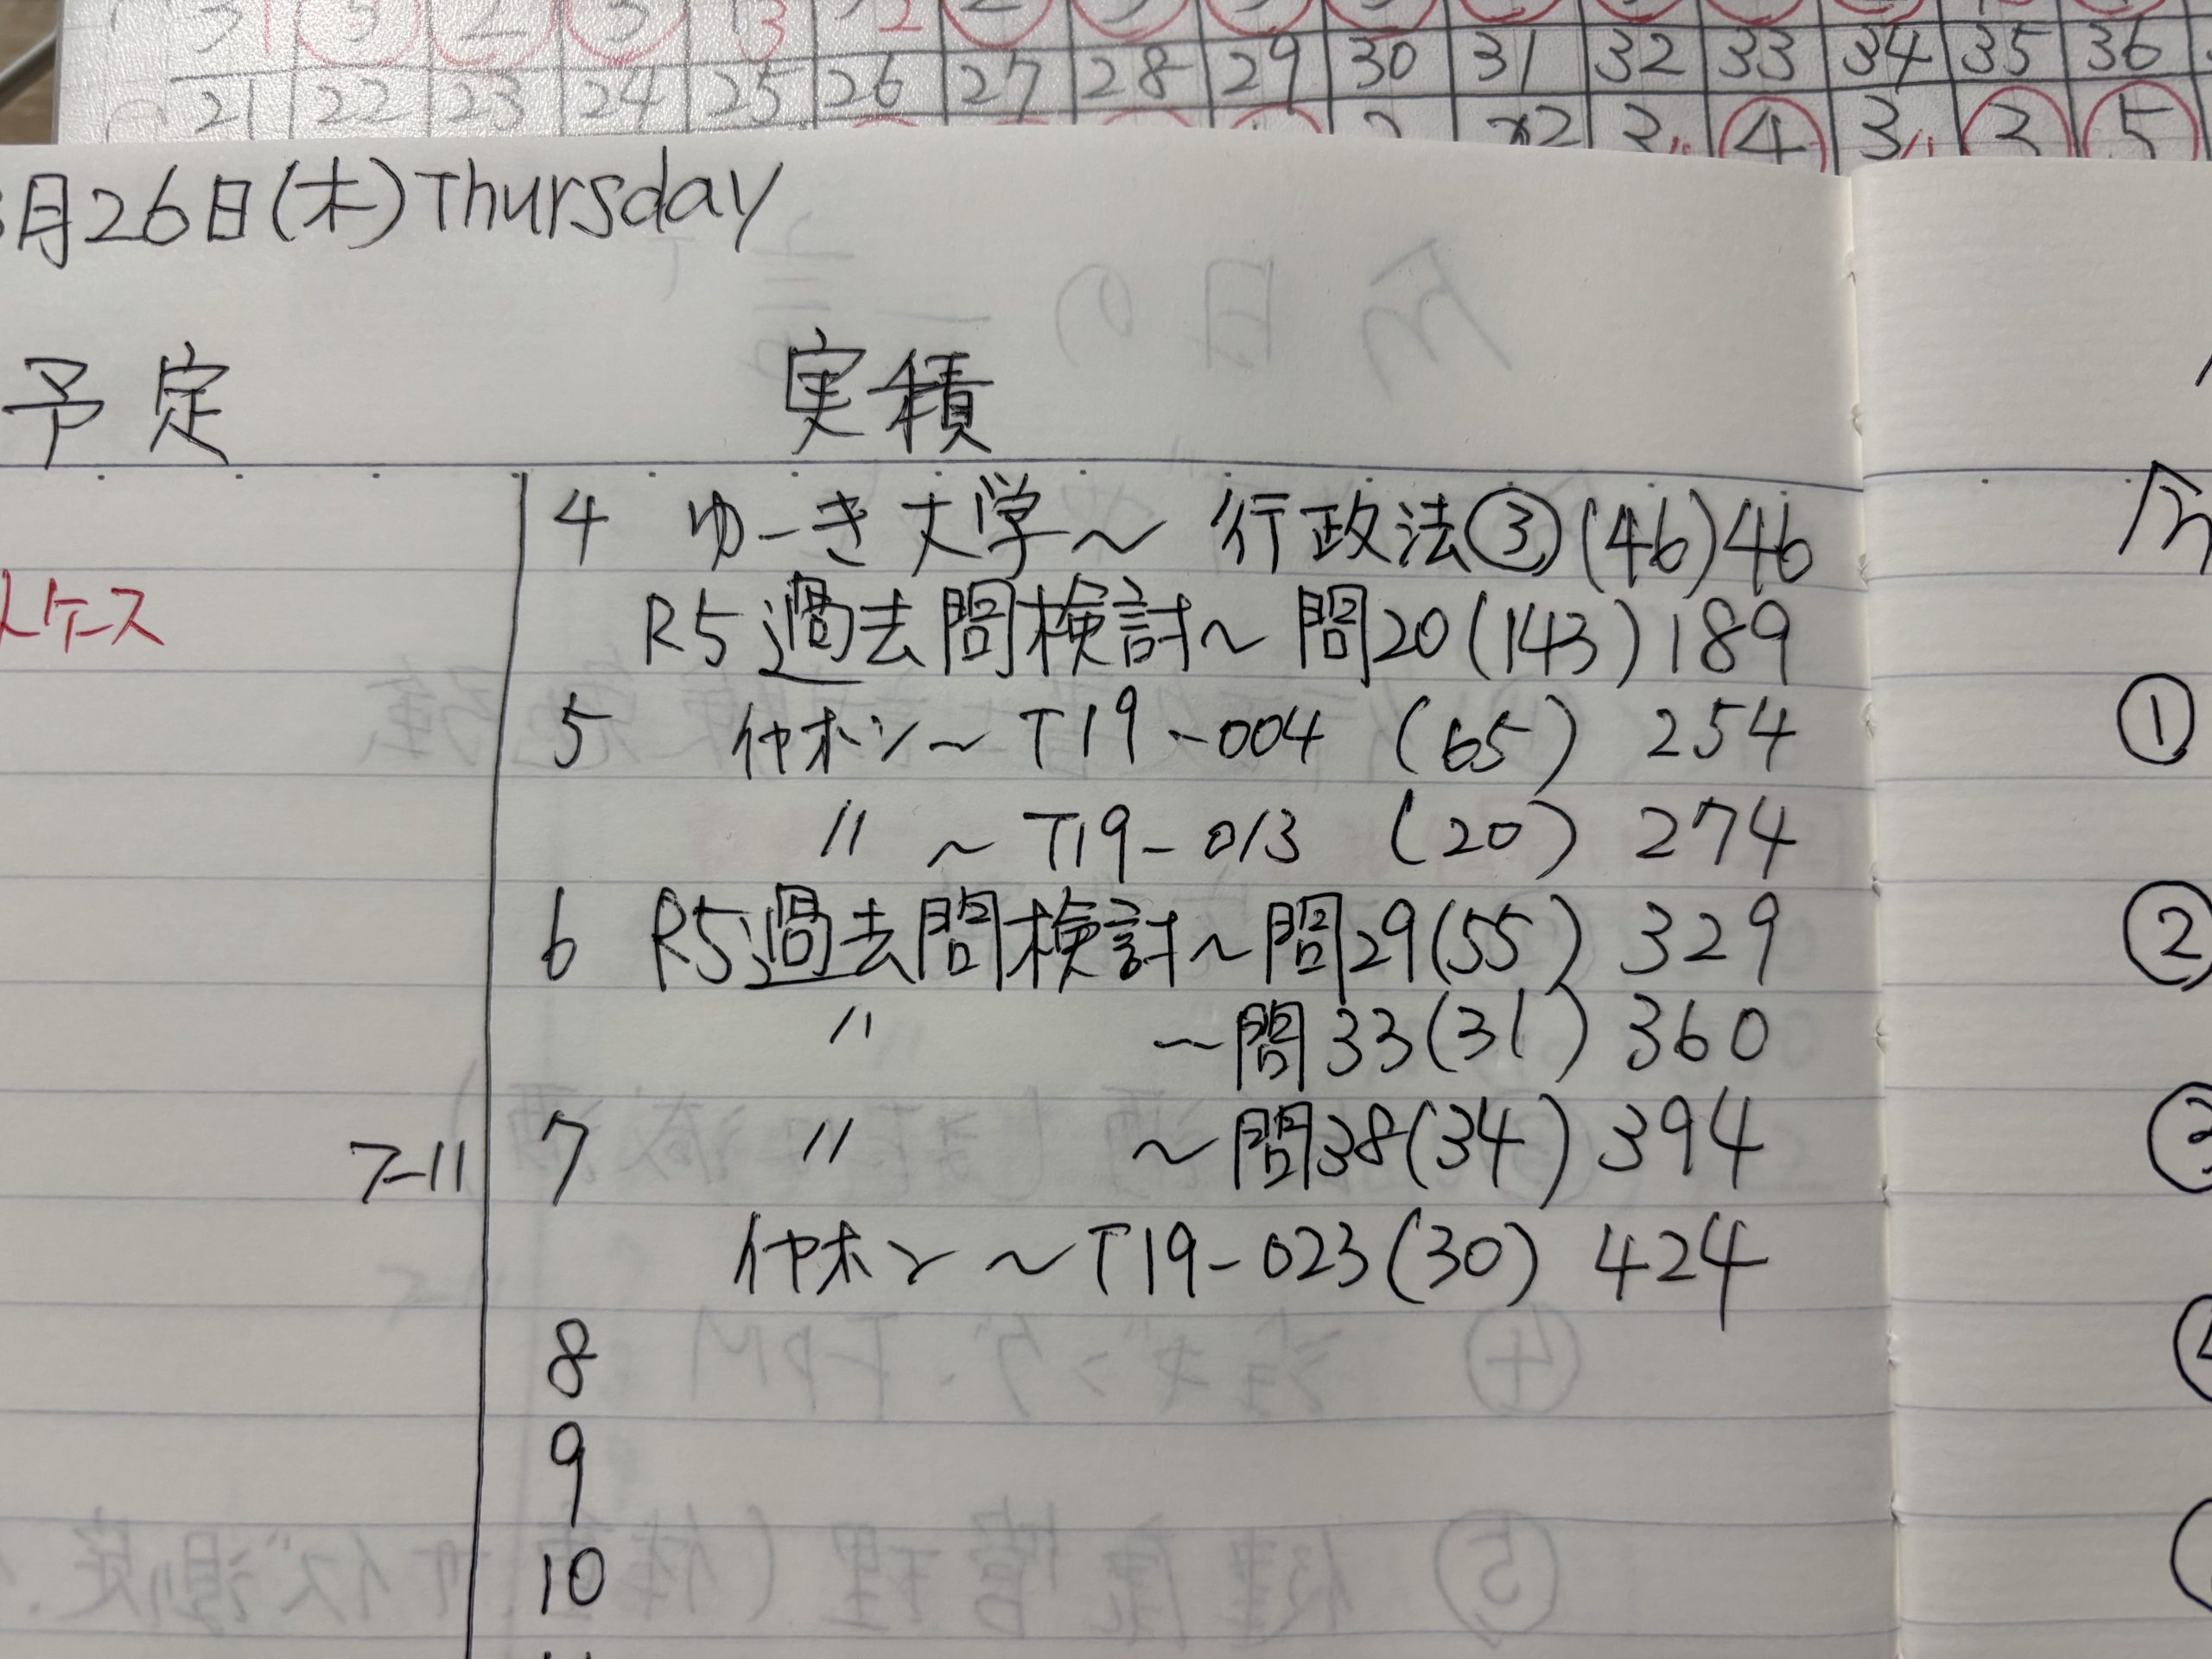 21 22 23 24 25 26 27 28 29 30 31 32 33 34 35 36
2 4 3 3 5
月26日(木)Thursday
予定 実積
4 ゆーき大学～行政法③(46)46
トケース
R5過去問検討～問20(143)189
5 イヤホン～T19-004 (65) 254
〃 ～T19-013 (20) 274
6 R5過去問検討～問29(55) 329
〃 ～問33(31) 360
7-11 7 〃 ～問38(34) 394
イヤホン～T19-023(30) 424
8
9
10
①
②
③